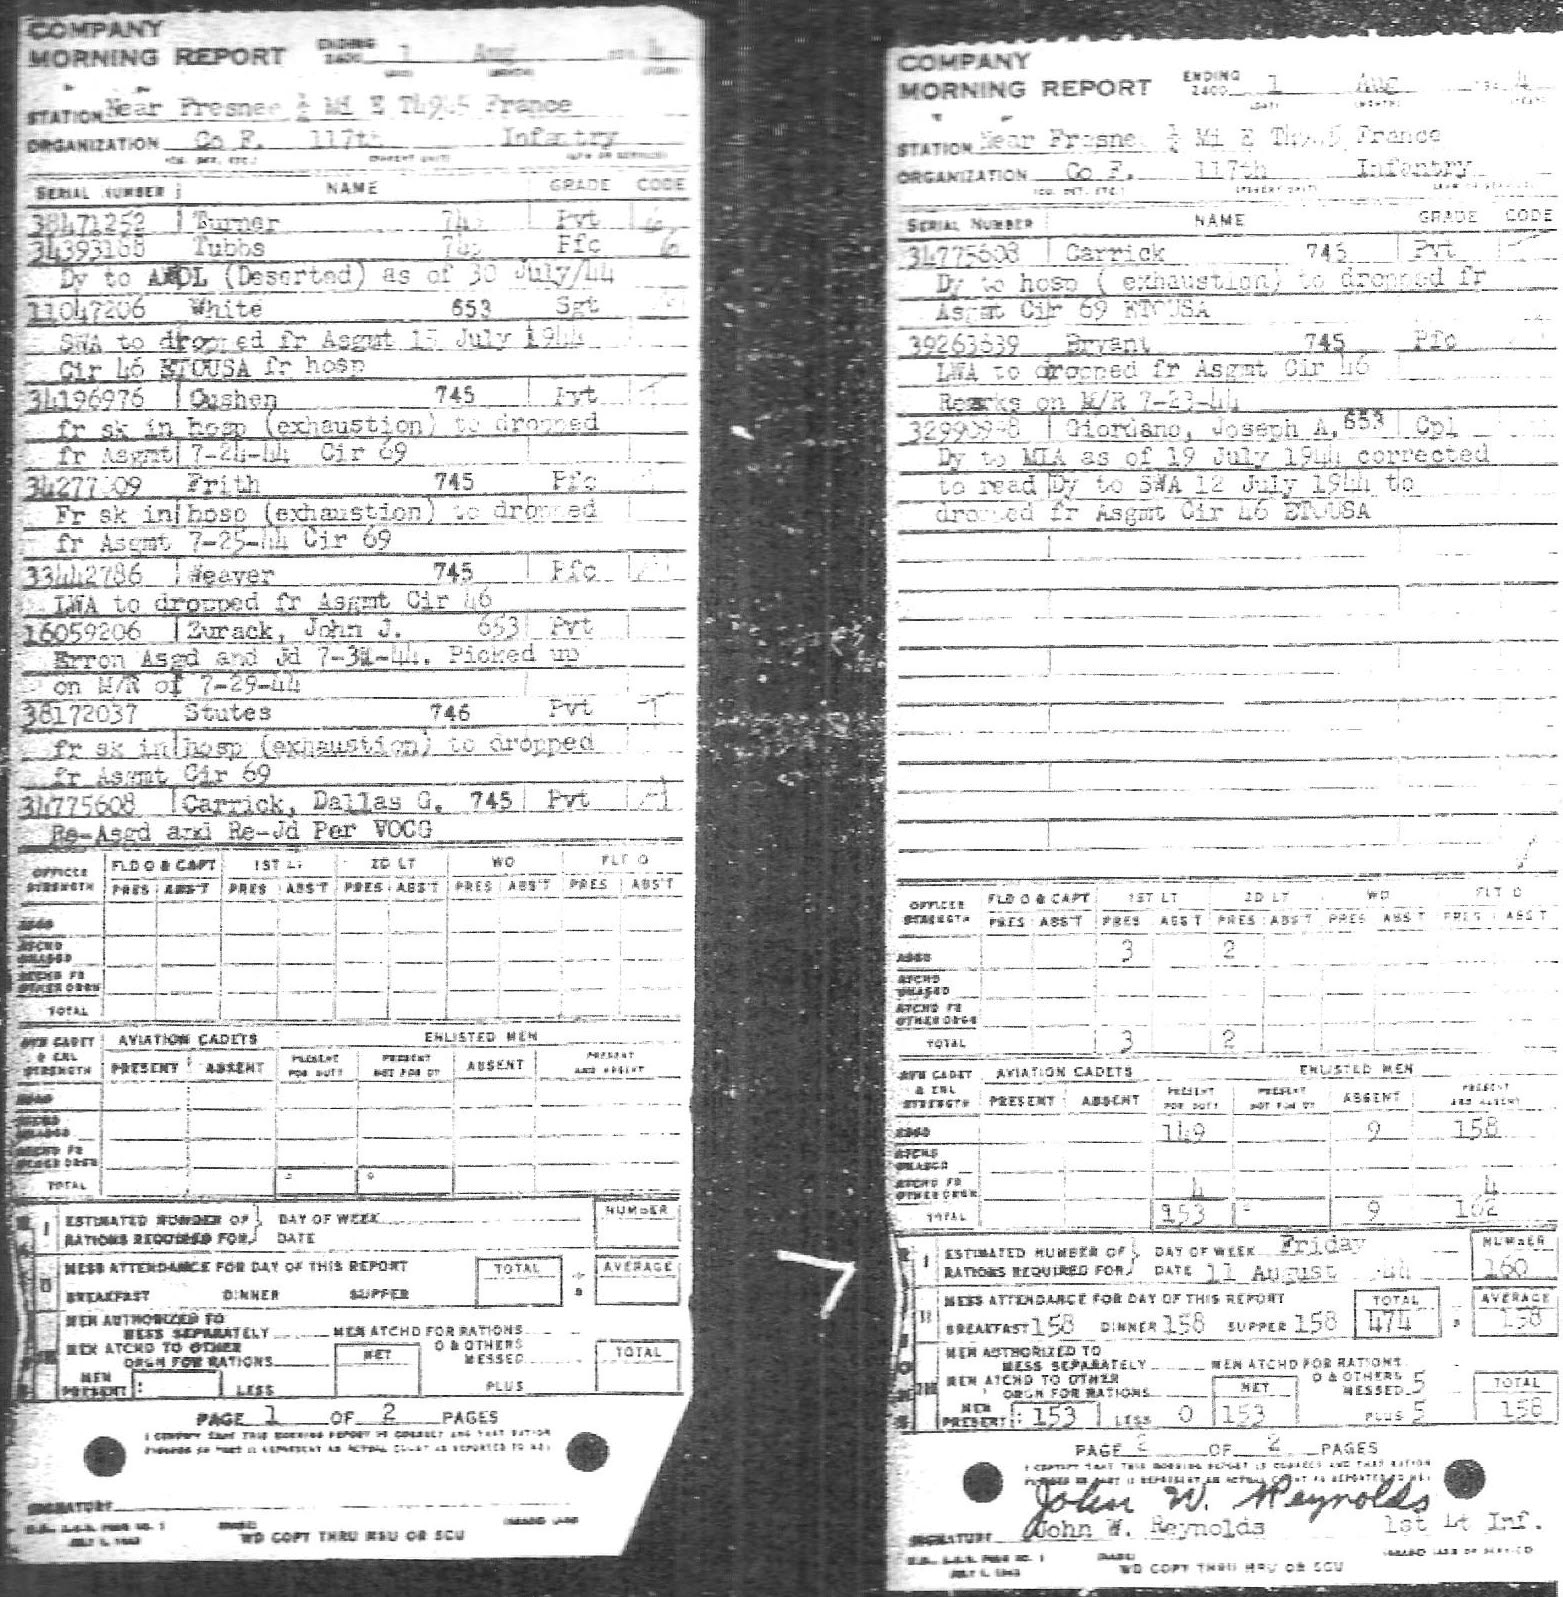 COMPANY
MORNING REPORT ENDING 2400 1 Aug 4
STATION Near Fresnes ½ Mi E T4985 France
ORGANIZATION Co F. 117th Infantry
SERIAL NUMBER NAME GRADE CODE
38471252 Turner 745 Pvt 6
34393168 Tubbs 745 Pfc 6
Dy to AWOL (Deserted) as of 30 July/44
11047206 White 653 Sgt
SWA to dropped fr Asgmt July 1944
Cir 46 ETOUSA fr hosp
34196976 Cushen 745 Pvt
fr sk in hosp (exhaustion) to dropped
fr Asgmt 7-24-44 Cir 69
Frith 745 Pfc
Fr sk in hosp (exhaustion) to dropped
fr Asgmt 7-25-44 Cir 69
33442786 Weaver 745 Pfc
LWA to dropped fr Asgmt Cir 46
16059206 Zurack, John J. 653 Pvt
Erron Asgd and Jd 7-31-44. Picked up
on M/R of 7-29-44
38172037 Stutes 746 Pvt
fr sk in hosp (exhaustion) to dropped
fr Asgmt Cir 69
34775608 Carrick, Dallas G. 745 Pvt
Re-Asgd and Re-Jd Per VOCG
OFFICER STRENGTH FLD O & CAPT 1ST LT 2D LT WO FLT O
PRES ABS'T PRES ABS'T PRES ABS'T PRES ABS'T PRES ABS'T
ASGD
ATCHD UNASGD
ATCHD FR OTHER ORGN
TOTAL
AVN CADET & ENL STRENGTH AVIATION CADETS ENLISTED MEN
PRESENT ABSENT PRESENT FOR DUTY PRESENT NOT FOR DY ABSENT PRESENT AND ABSENT
ASGD
ATCHD UNASGD
ATCHD FR OTHER ORGN
TOTAL
I ESTIMATED NUMBER OF RATIONS REQUIRED FOR DAY OF WEEK DATE NUMBER
II MESS ATTENDANCE FOR DAY OF THIS REPORT TOTAL ÷ 3 AVERAGE
BREAKFAST DINNER SUPPER
MEN AUTHORIZED TO MESS SEPARATELY MEN ATCHD FOR RATIONS
MEN ATCHD TO OTHER ORGN FOR RATIONS NET O & OTHERS MESSED TOTAL
MEN PRESENT: LESS PLUS
PAGE 1 OF 2 PAGES
I CERTIFY THAT THIS MORNING REPORT IS CORRECT AND THAT RATION
FIGURES IN PART III REPRESENT AN ACTUAL COUNT AS REPORTED TO ME:
SIGNATURE
WD COPY THRU MRU OR SCU
COMPANY
MORNING REPORT ENDING 2400 1 Aug 194 4
STATION Near Fresnes ½ Mi E T4985 France
ORGANIZATION Co F. 117th Infantry
SERIAL NUMBER NAME GRADE CODE
34775608 Carrick 745 Pvt
Dy to hosp ( exhaustion) to dropped fr
Asgmt Cir 69 ETOUSA
39263639 Bryant 745 Pfc
LWA to dropped fr Asgmt Cir 46
Remarks on M/R 7-23-44
Giordano, Joseph A, 653 Cpl
Dy to MIA as of 19 July 1944 corrected
to read Dy to SWA 12 July 1944 to
dropped fr Asgmt Cir 46 ETOUSA
OFFICER STRENGTH FLD O & CAPT 1ST LT 2D LT WO FLT O
PRES ABS'T PRES ABS'T PRES ABS'T PRES ABS'T PRES ABS'T
ASGD 3 2
ATCHD UNASGD
ATCHD FR OTHER ORGN
TOTAL 3 2
AVN CADET & ENL STRENGTH AVIATION CADETS ENLISTED MEN
PRESENT ABSENT PRESENT FOR DUTY PRESENT NOT FOR DY ABSENT PRESENT AND ABSENT
ASGD 149 9 158
ATCHD UNASGD
ATCHD FR OTHER ORGN 4 4
TOTAL 153 9 162
I ESTIMATED NUMBER OF RATIONS REQUIRED FOR DAY OF WEEK Friday DATE 11 August 44 NUMBER 160
II MESS ATTENDANCE FOR DAY OF THIS REPORT TOTAL 474 ÷ 3 AVERAGE 158
BREAKFAST 158 DINNER 158 SUPPER 158
MEN AUTHORIZED TO MESS SEPARATELY MEN ATCHD FOR RATIONS
MEN ATCHD TO OTHER ORGN FOR RATIONS NET O & OTHERS MESSED 5 TOTAL
MEN PRESENT: 153 LESS 0 153 PLUS 5 158
PAGE 2 OF 2 PAGES
I CERTIFY THAT THIS MORNING REPORT IS CORRECT AND THAT RATION
FIGURES IN PART III REPRESENT AN ACTUAL COUNT AS REPORTED TO ME:
John W. Reynolds
SIGNATURE John W. Reynolds 1st Lt Inf.
WD COPY THRU MRU OR SCU